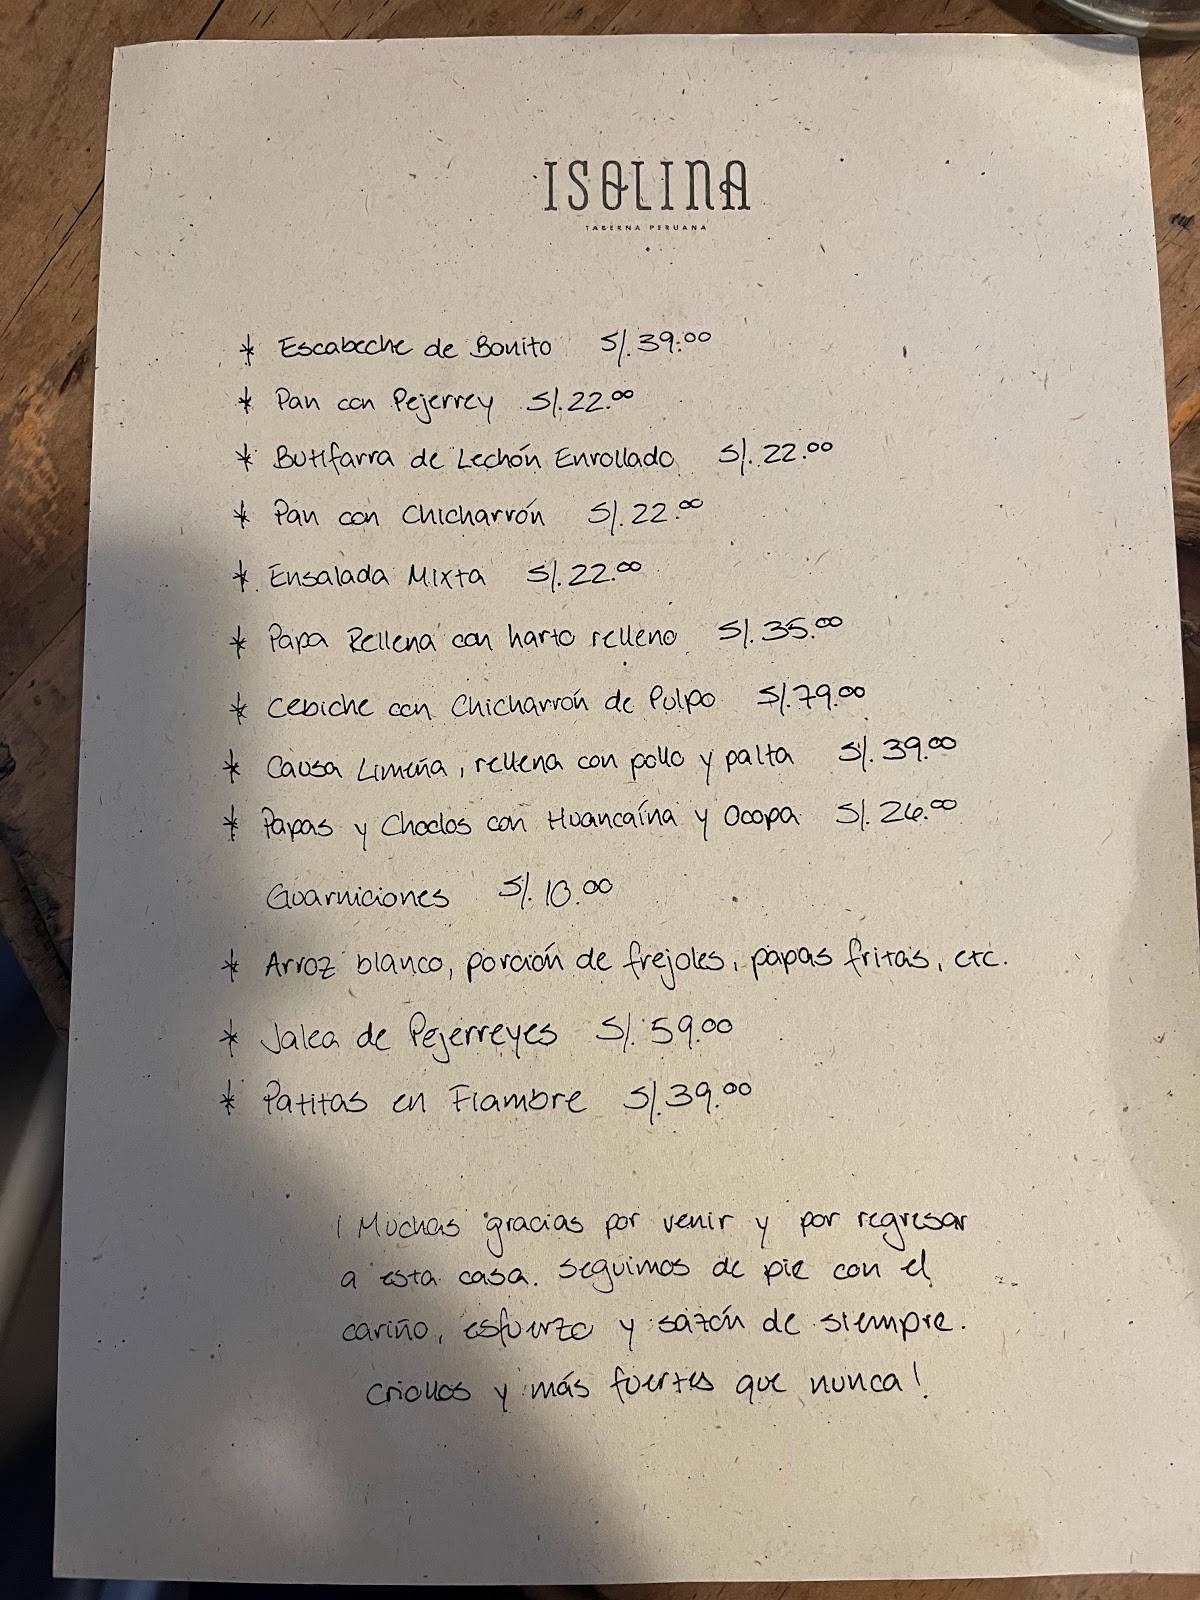 ISOLINA
TABERNA PERUANA
* Escabeche de Bonito S/.39.00
* Pan con Pejerrey S/.22.00
* Butifarra de Lechón Enrollado S/.22.00
* Pan con Chicharrón S/.22.00
* Ensalada Mixta S/.22.00
* Papa Rellena con harto relleno S/.35.00
* Cebiche con Chicharrón de Pulpo S/.79.00
* Causa Limeña, rellena con pollo y palta S/.39.00
* Papas y Choclos con Huancaína y Ocopa S/.26.00
Guarniciones S/.10.00
* Arroz blanco, porción de frejoles, papas fritas, etc.
* Jalea de Pejerreyes S/.59.00
* Patitas en Fiambre S/.39.00
¡Muchas gracias por venir y por regresar
a esta casa. Seguimos de pie con el
cariño, esfuerzo y sazón de siempre.
Criollos y más fuertes que nunca!